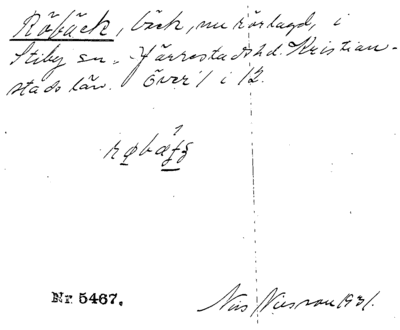 Röbäck, bäck, nu rörlagd, i
Stiby sn. Järrestads hd. Kristian-
stads län. Över 1 i 12.
Nr 5467.
Nils Niesson 1931.